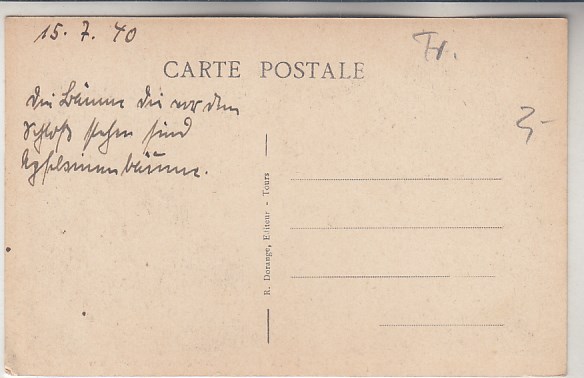 15. 7. 40
Fr.
CARTE POSTALE
Die Bäume die vor dem
Schloß stehen sind
Apfelsinenbäume.
3,-
R. Dorange, Editeur - Tours